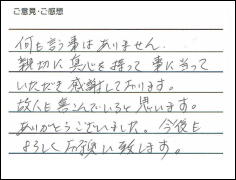 ご意見・ご感想
何も言う事はありません.
親切に真心を持って事に当って
いただき感謝しております。
故人も喜こんでいると思います。
ありがとうございました。今後も
よろしくお願い致します。